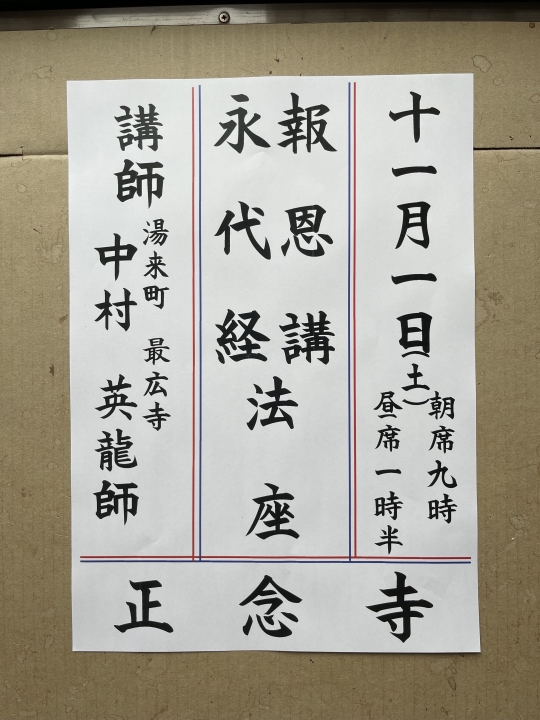 十一月一日(土)
朝席九時
昼席一時半
報恩講
永代経
法座
講師
湯来町 最広寺
中村 英龍師
正念寺